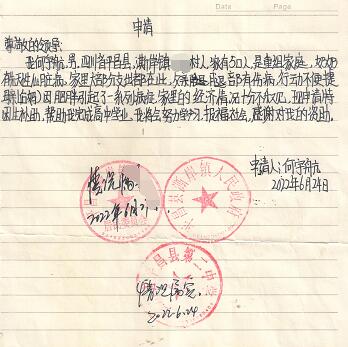 Date Page
申请
尊敬的领导：
我何宇航，男，四川省平昌县，澌岸镇 村人，家有5口人，是重组家庭，奶奶
患有心脏病，家里大部分支出都在此，父亲 腿部有伤病，行动不便提
因肥胖引起了一系列疾病，家里的经济情况十分不好，现申请特
困补助，帮助我完成高中学业，我将会努力学习，报福社会，感谢对我的资助。
申请人：何宇航
2022年6月24日
情况属
2022年6月
平昌县澌岸镇人民政府
村民委员会
平昌县第二中学
情况属实．
2022.6.24